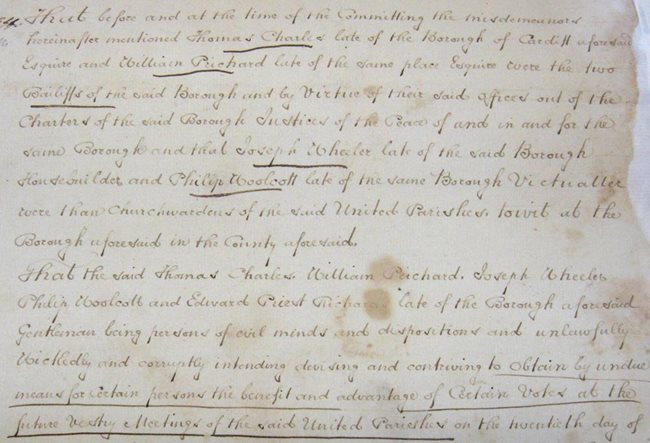 That before and at the time of the Committing the misdemeanors
hereinafter mentioned Thomas Charles late of the Borough of Cardiff aforesaid
Esquire and William Prichard late of the same place Esquire were the two
Bailiffs of the said Borough and by Virtue of their said offices out of the
Charters of the said Borough Justices of the Peace of and in and for the
same Borough and that Joseph Wheeler late of the said Borough
Housebuilder and Philip Woolcott late of the same Borough Victualler
were than Churchwardens of the said United Parishes to wit at the
Borough aforesaid in the County aforesaid.
That the said Thomas Charles William Prichard. Joseph Wheeler
Philip Woolcott and Edward Priest Richards late of the Borough aforesaid
Gentleman being persons of evil minds and dispositions and unlawfully
Wickedly and corruptly intending devising and contriving to Obtain by undue
means for Certain persons the benefit and advantage of Certain Votes at the
future Vestry Meetings of the said United Parishes on the twentieth day of